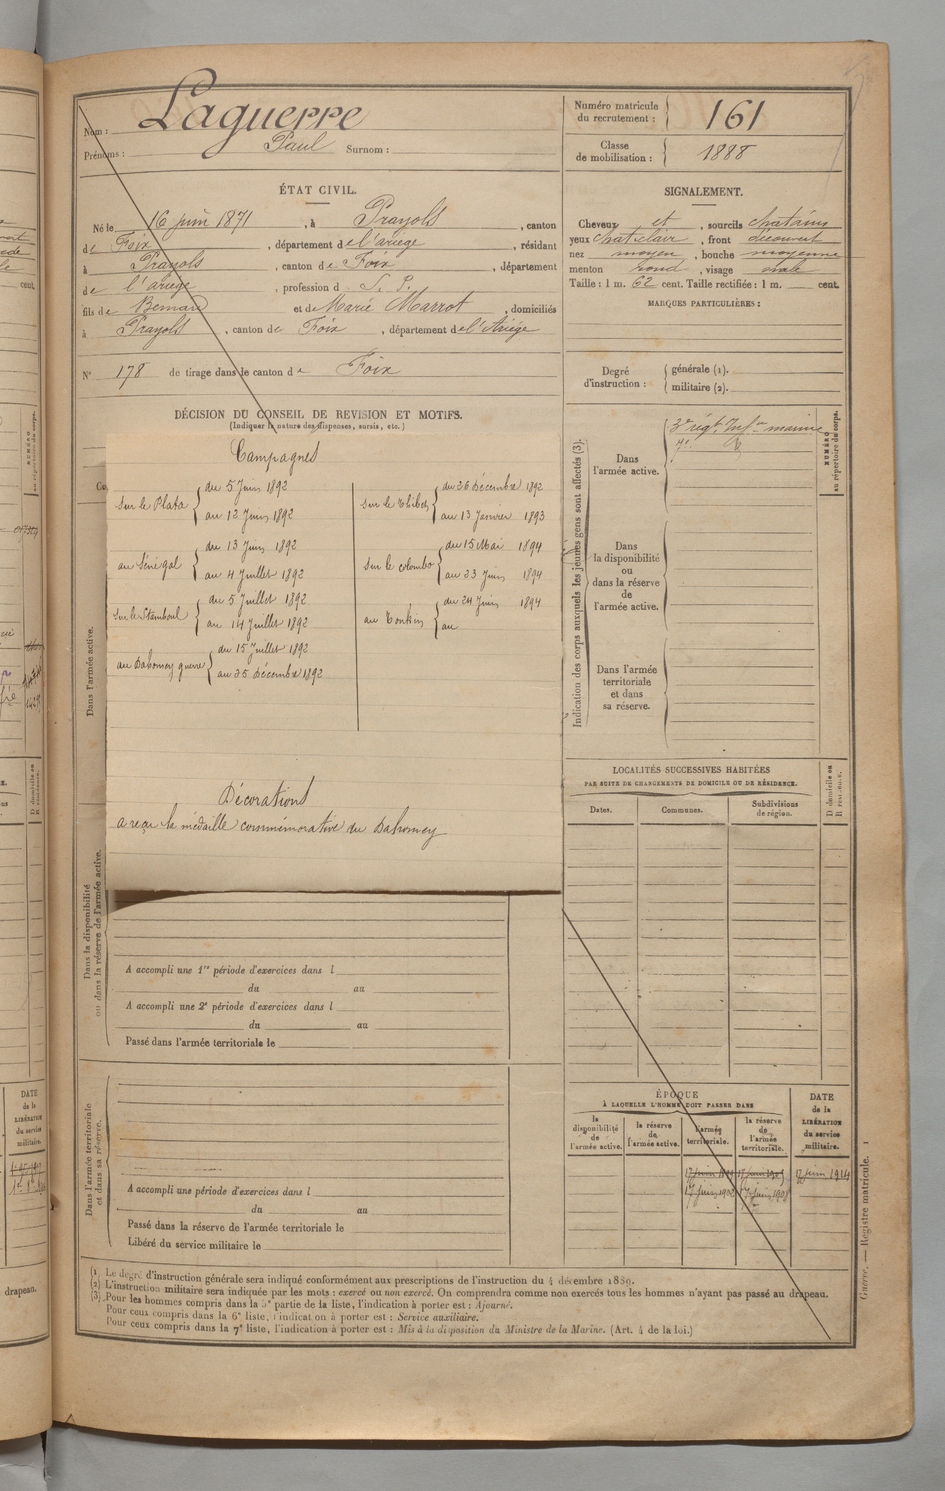 Nom : Laguerre
Prénoms : Paul Surnom :
Numéro matricule du recrutement : 161
Classe de mobilisation : 1888
ÉTAT CIVIL.
Né le 16 juin 1871, à Prayols, canton
de Foix, département de l'ariege, résidant
à Prayols, canton de Foix, département
de l'ariege, profession d S. P.
fils de Bernard et de Marie Marrot, domiciliés
à Prayols, canton de Foix, département de l'Ariège
N° 178 de tirage dans le canton de Foix
SIGNALEMENT.
Cheveux et, sourcils chatains
yeux chat. clair, front découvert
nez moyen, bouche moyenne
menton rond, visage ovale
Taille : 1 m. 62 cent. Taille rectifiée : 1 m. cent.
MARQUES PARTICULIÈRES :
Degré d'instruction : générale (1).
militaire (2).
DÉCISION DU CONSEIL DE REVISION ET MOTIFS.
(Indiquer la nature des dispenses, sursis, etc.)
Campagnes
Sur le Plata du 5 Juin 1892
au 12 Juin 1892
au Sénégal du 13 Juin 1892
au 4 Juillet 1892
Sur le Stamboul du 5 Juillet 1892
au 14 Juillet 1892
au Dahomey guerre du 15 Juillet 1892
au 25 Décembre 1892
Sur le Thibet du 26 Décembre 1892
au 13 Janvier 1893
Sur le colombo du 15 Mai 1894
au 23 Juin 1894
au Tonkin du 24 Juin 1894
au
Décorations
a reçu la médaille commémorative du Dahomey
Dans l'armée active.
Dans la disponibilité
ou dans la réserve de l'armée active.
A accompli une 1re période d'exercices dans l
du au
A accompli une 2e période d'exercices dans l
du au
Passé dans l'armée territoriale le
Dans l'armée territoriale
et dans sa réserve.
A accompli une période d'exercices dans l
du au
Passé dans la réserve de l'armée territoriale le
Libéré du service militaire le
Indication des corps auxquels les jeunes gens sont affectés (3).
Dans
l'armée active.
3e régt Infie marine
NUMÉRO
au répertoire du corps.
Dans
la disponibilité
ou
dans la réserve
de
l'armée active.
Dans l'armée
territoriale
et dans
sa réserve.
LOCALITÉS SUCCESSIVES HABITÉES
PAR SUITE DE CHANGEMENTS DE DOMICILE OU DE RÉSIDENCE.
Dates. Communes. Subdivisions de région.
D domicile ou
R résidence.
ÉPOQUE
À LAQUELLE L'HOMME DOIT PASSER DANS
la disponibilité de l'armée active.
la réserve de l'armée active.
l'armée territoriale.
la réserve de l'armée territoriale.
DATE
de la
LIBÉRATION
du service
militaire.
17 juin 1902 17 juin 1908
(1) Le degré d'instruction générale sera indiqué conformément aux prescriptions de l'instruction du 4 décembre 1889.
(2) L'instruction militaire sera indiquée par les mots : exercé ou non exercé. On comprendra comme non exercés tous les hommes n'ayant pas passé au drapeau.
(3) Pour les hommes compris dans la 5e partie de la liste, l'indication à porter est : Ajourné.
Pour ceux compris dans la 6e liste, l'indication à porter est : Service auxiliaire.
Pour ceux compris dans la 7e liste, l'indication à porter est : Mis à la disposition du Ministre de la Marine. (Art. 4 de la loi.)
Guerre. — Registre matricule. 1
DATE
de la
LIBÉRATION
du service
militaire.
drapeau.